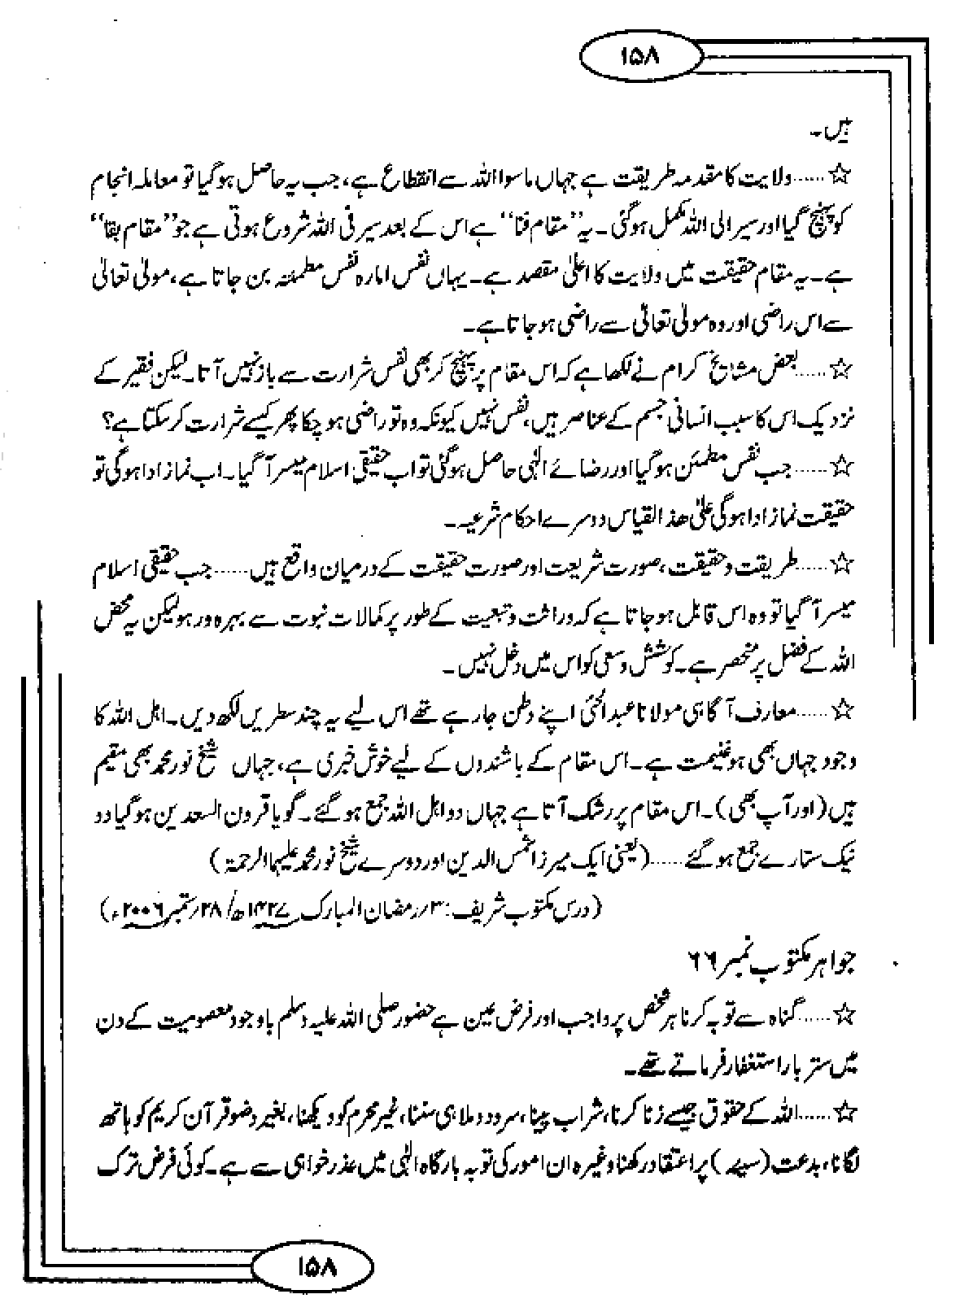 ۱۵۸
ہیں۔
☆......ولایت کا مقدمہ طریقت ہے جہاں ماسوا اللہ سے انقطاع ہے، جب یہ حاصل ہوگیا تو معاملہ انجام
کو پہنچ گیا اور سیر الی اللہ مکمل ہوگئی۔ یہ ''مقام فنا'' ہے اس کے بعد سیر فی اللہ شروع ہوتی ہے جو ''مقام بقا''
ہے۔ یہ مقام حقیقت میں ولایت کا اعلیٰ مقصد ہے۔ یہاں نفس امارہ نفس مطمئنہ بن جاتا ہے، مولیٰ تعالیٰ
سے اس راضی اور وہ مولیٰ تعالیٰ سے راضی ہوجاتا ہے۔
☆......بعض مشایخ کرام نے لکھا ہے کہ اس مقام پر پہنچ کر بھی نفس شرارت سے باز نہیں آتا۔ لیکن فقیر کے
نزدیک اس کا سبب انسانی جسم کے عناصر ہیں، نفس نہیں کیونکہ وہ تو راضی ہوچکا پھر کیسے شرارت کرسکتا ہے؟
☆......جب نفس مطمئن ہوگیا اور رضائے الٰہی حاصل ہوگئی تو اب حقیقی اسلام میسر آگیا۔ اب نماز ادا ہوگی تو
حقیقت نماز ادا ہوگی علیٰ ھذا القیاس دوسرے احکام شرعیہ۔
☆......طریقت و حقیقت، صورت شریعت اور صورت حقیقت کے درمیان واقع ہیں......جب حقیقی اسلام
میسر آگیا تو وہ اس قابل ہوجاتا ہے کہ وراثت و تبعیت کے طور پر کمالات نبوت سے بہرہ ور ہو لیکن یہ محض
اللہ کے فضل پر منحصر ہے۔ کوشش و سعی کو اس میں دخل نہیں۔
☆......معارف آگاہی مولانا عبدالحئی اپنے وطن جارہے تھے اس لیے یہ چند سطریں لکھ دیں۔ اہل اللہ کا
وجود جہاں بھی ہو غنیمت ہے۔ اس مقام کے باشندوں کے لیے خوش خبری ہے، جہاں شیخ نور محمد بھی مقیم
ہیں (اور آپ بھی)۔ اس مقام پر رشک آتا ہے جہاں دو اہل اللہ جمع ہوگئے۔ گویا قرون السعدین ہوگیا دو
نیک ستارے جمع ہوگئے......(یعنی ایک میرزا شمس الدین اور دوسرے شیخ نور محمد علیہما الرحمۃ)
(درس مکتوب شریف: ۳/رمضان المبارک ۱۴۲۷ھ/ ۲۸/ستمبر ۲۰۰۶ء)
جواہر مکتوب نمبر ۶۶
☆......گناہ سے توبہ کرنا ہر شخص پر واجب اور فرض عین ہے حضور صلی اللہ علیہ وسلم باوجود معصومیت کے دن
میں ستر بار استغفار فرماتے تھے۔
☆......اللہ کے حقوق جیسے زنا کرنا، شراب پینا، سرود و ملاہی سننا، غیر محرم کو دیکھنا، بغیر وضو قرآن کریم کو ہاتھ
لگانا، بدعت (سیئہ) پر اعتقاد رکھنا وغیرہ ان امور کی توبہ بارگاہ الٰہی میں عذر خواہی سے ہے۔ کوئی فرض ترک
۱۵۸